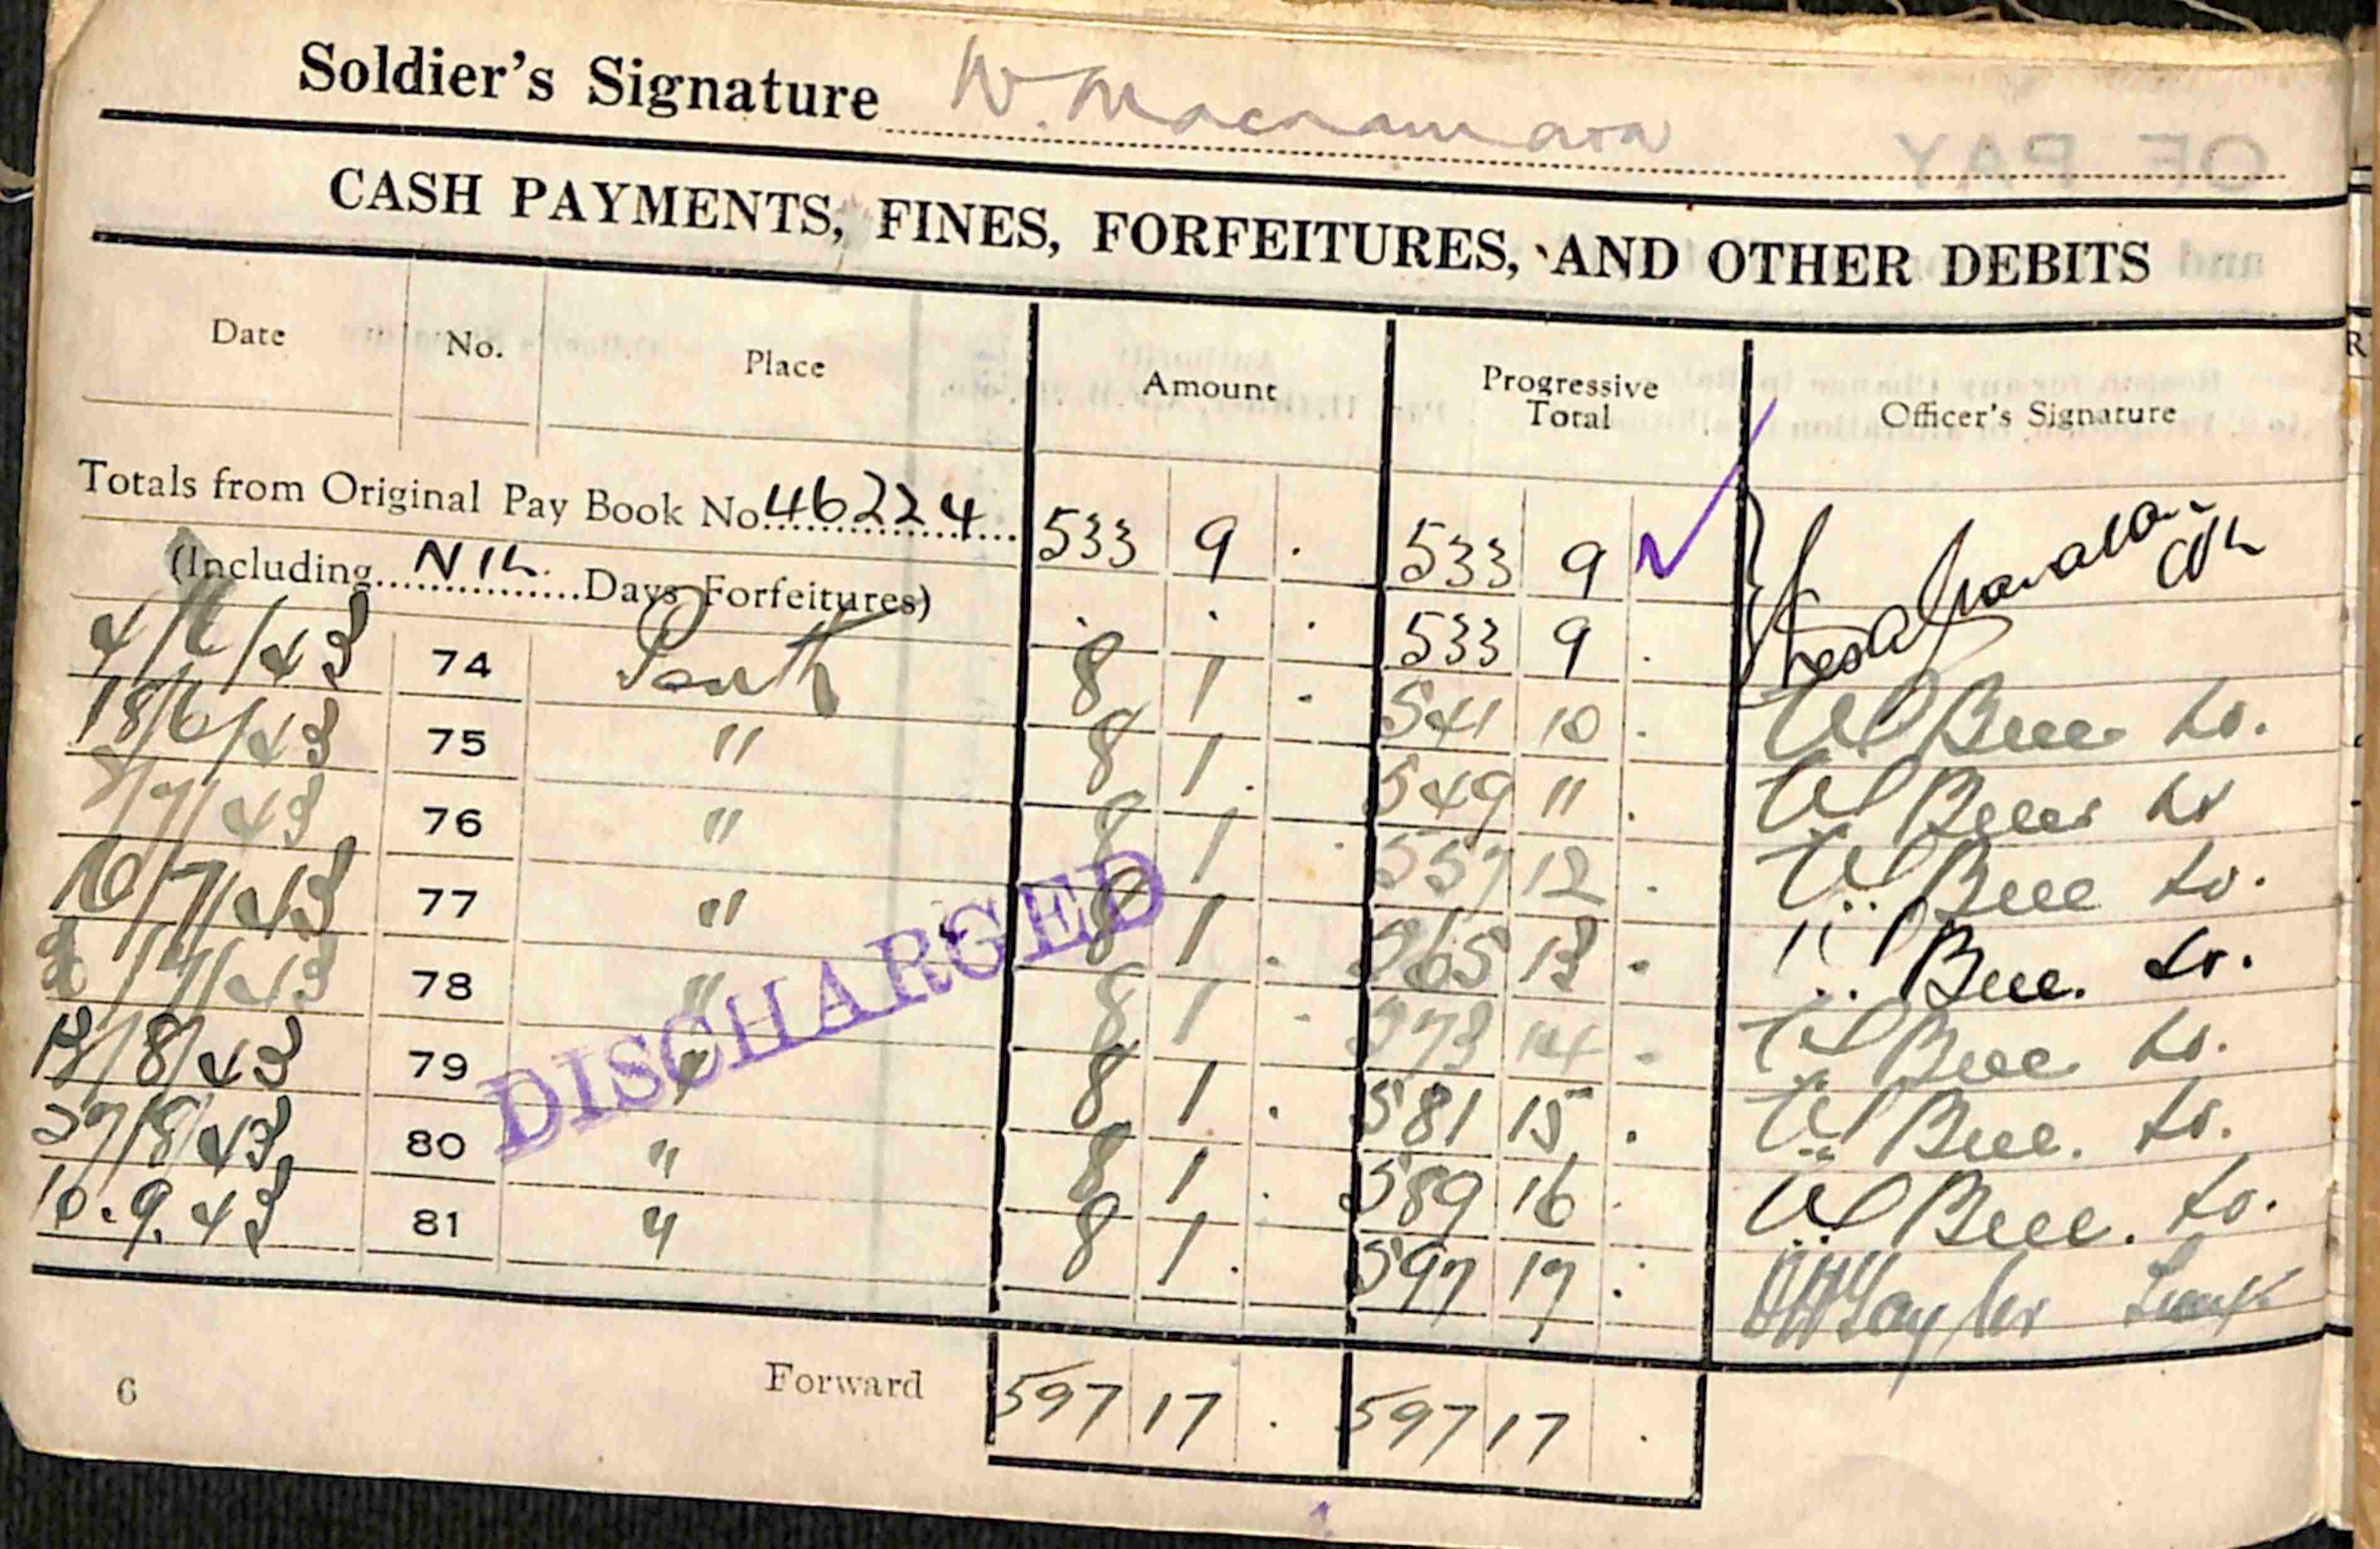 Soldier's Signature W. Macnamara
CASH PAYMENTS, FINES, FORFEITURES, AND OTHER DEBITS
Date No. Place Amount Progressive Total Officer's Signature
Totals from Original Pay Book No. 46224 533 9 . 533 9
(Including NIL Days Forfeitures) . . . 533 9 .
4/6/43 74 Perth 8 1 . 541 10 . Bell Lt.
18/6/43 75 " 8 1 . 549 11 . Bell Lt
2/7/43 76 " 8 1 . 557 12 . Bell Lt.
16/7/43 77 " 8 1 . 565 13 . Bell. Lt.
/7/43 78 " 8 1 . 573 14 . Bell Lt.
13/8/43 79 " 8 1 . 581 15 . Bell. Lt.
27/8/43 80 " 8 1 . 589 16 . Bell. Lt.
10.9.43 81 " 8 1 . 597 17 . Taylor Lieut
DISCHARGED
6 Forward 597 17 . 597 17 .